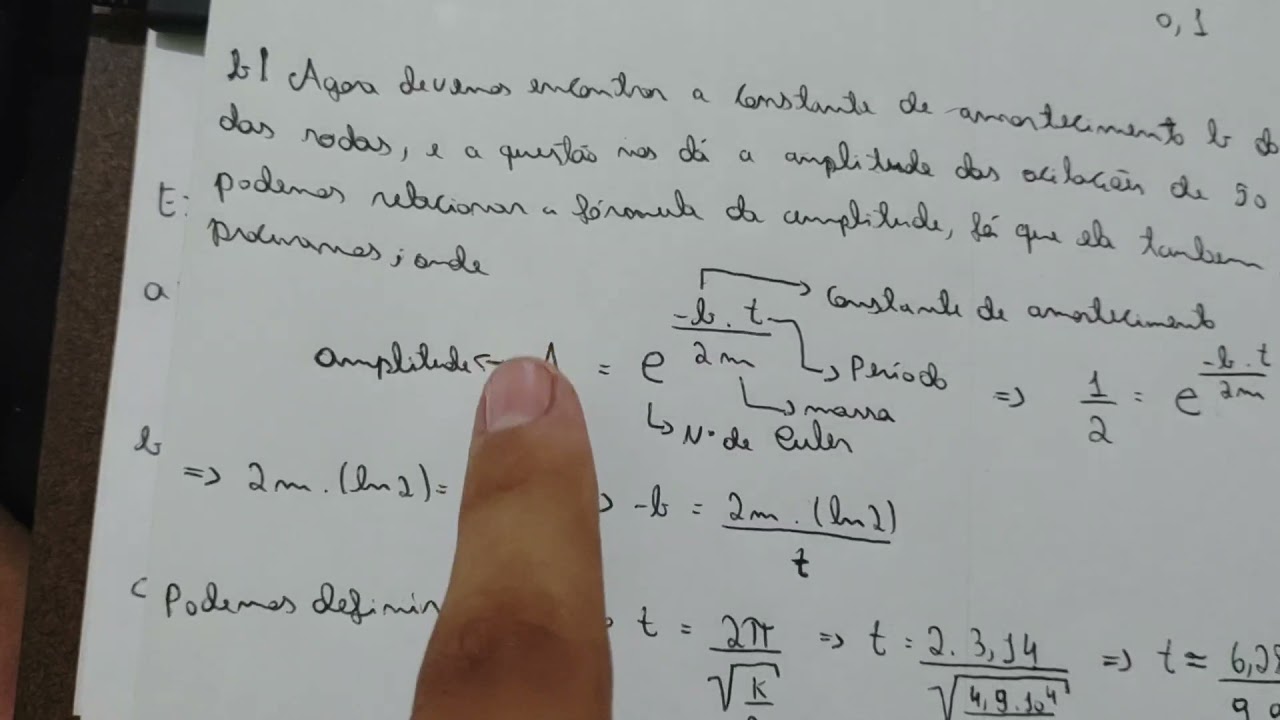 0,1
b| Agora devemos encontrar a constante de amortecimento b do
das rodas, e a questão nos dá a amplitude das ocilações de 50
t: podemos relacionar a fórmula da amplitude, já que ela tambem
procuramos; onde
a
-b.t → constante de amortecimento
amplitude ← A = e^(-b.t/2m) → Período ⇒ 1/2 = e^(-b.t/2m)
→ massa
→ N° de Euler
b
⇒ 2m.(ln2)= ⇒ -b = 2m.(ln2)/t
c Podemos definir t = 2π/√k ⇒ t = 2.3,14/√4,9.10⁴ ⇒ t ≈ 6,28